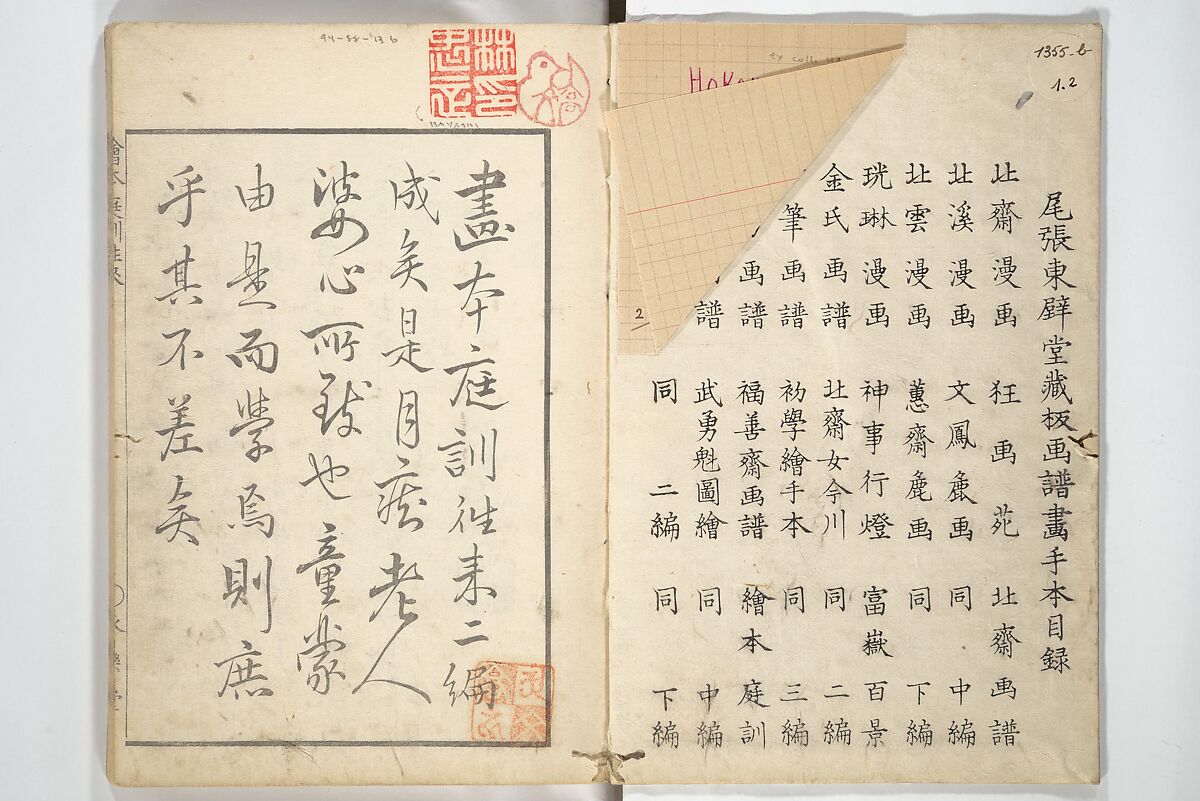 1355-b
1.2
尾張東壁堂藏板画譜畫手本目録
北齋漫画 狂画苑 北齋画譜
北溪漫画 文鳳麁画 同 中編
北雲漫画 蕙齋麁画 同 下編
珖琳漫画 神事行燈 富嶽百景
金氏画譜 北齋女今川 同 二編
筆画譜 初學繪手本 同 三編
画譜 福善齋画譜 繪本庭訓
譜 武勇魁圖繪 同 中編
同 二編 同 下編
ex coll.
2
林忠正印
HAYASHI
畫本庭訓往来二編
成矣是月癡老人
婆心所致也童蒙
由是而學焉則庶
乎其不差矣